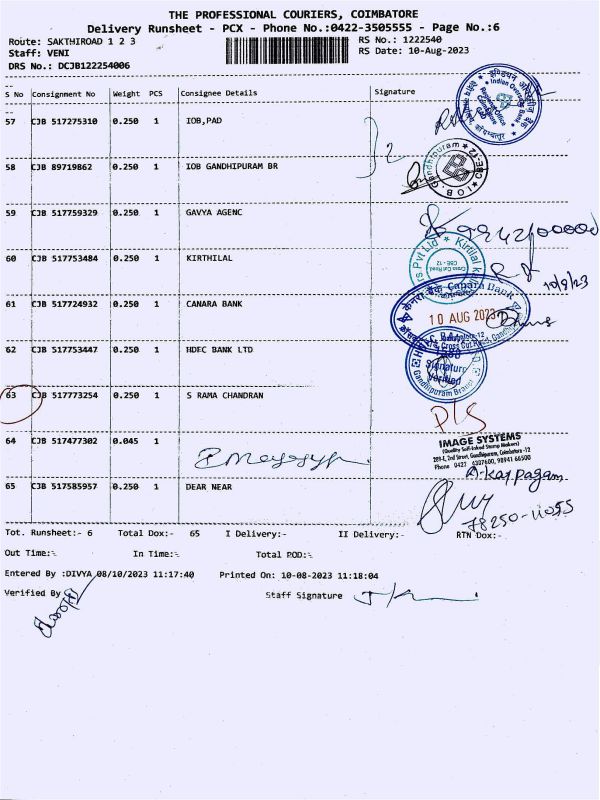 THE PROFESSIONAL COURIERS, COIMBATORE
Delivery Runsheet - PCX - Phone No.:0422-3505555 - Page No.:6
Route: SAKTHIROAD 1 2 3 RS No.: 1222540
Staff: VENI RS Date: 10-Aug-2023
DRS No.: DCJB122254006
S No Consignment No Weight PCS Consignee Details Signature
57 CJB 517275310 0.250 1 IOB,PAD
2
58 CJB 89719862 0.250 1 IOB GANDHIPURAM BR
59 CJB 517759329 0.250 1 GAVYA AGENC
60 CJB 517753484 0.250 1 KIRTHILAL
10/8/23
61 CJB 517724932 0.250 1 CANARA BANK
Canara Bank
10 AUG 2023
62 CJB 517753447 0.250 1 HDFC BANK LTD
Signature
Verified
Gandhipuram Branch
63 CJB 517773254 0.250 1 S RAMA CHANDRAN
64 CJB 517477302 0.045 1
IMAGE SYSTEMS
(Quality Self-Inked Stamp Makers)
Phone 0422 4307600, 98941 66500
A.Karpagam
65 CJB 517585957 0.250 1 DEAR NEAR
78250-11055
Tot. Runsheet:- 6 Total Dox:- 65 I Delivery:- II Delivery:- RTN Dox:-
Out Time:- In Time:- Total POD:-
Entered By :DIVYA 08/10/2023 11:17:40 Printed On: 10-08-2023 11:18:04
Verified By Staff Signature